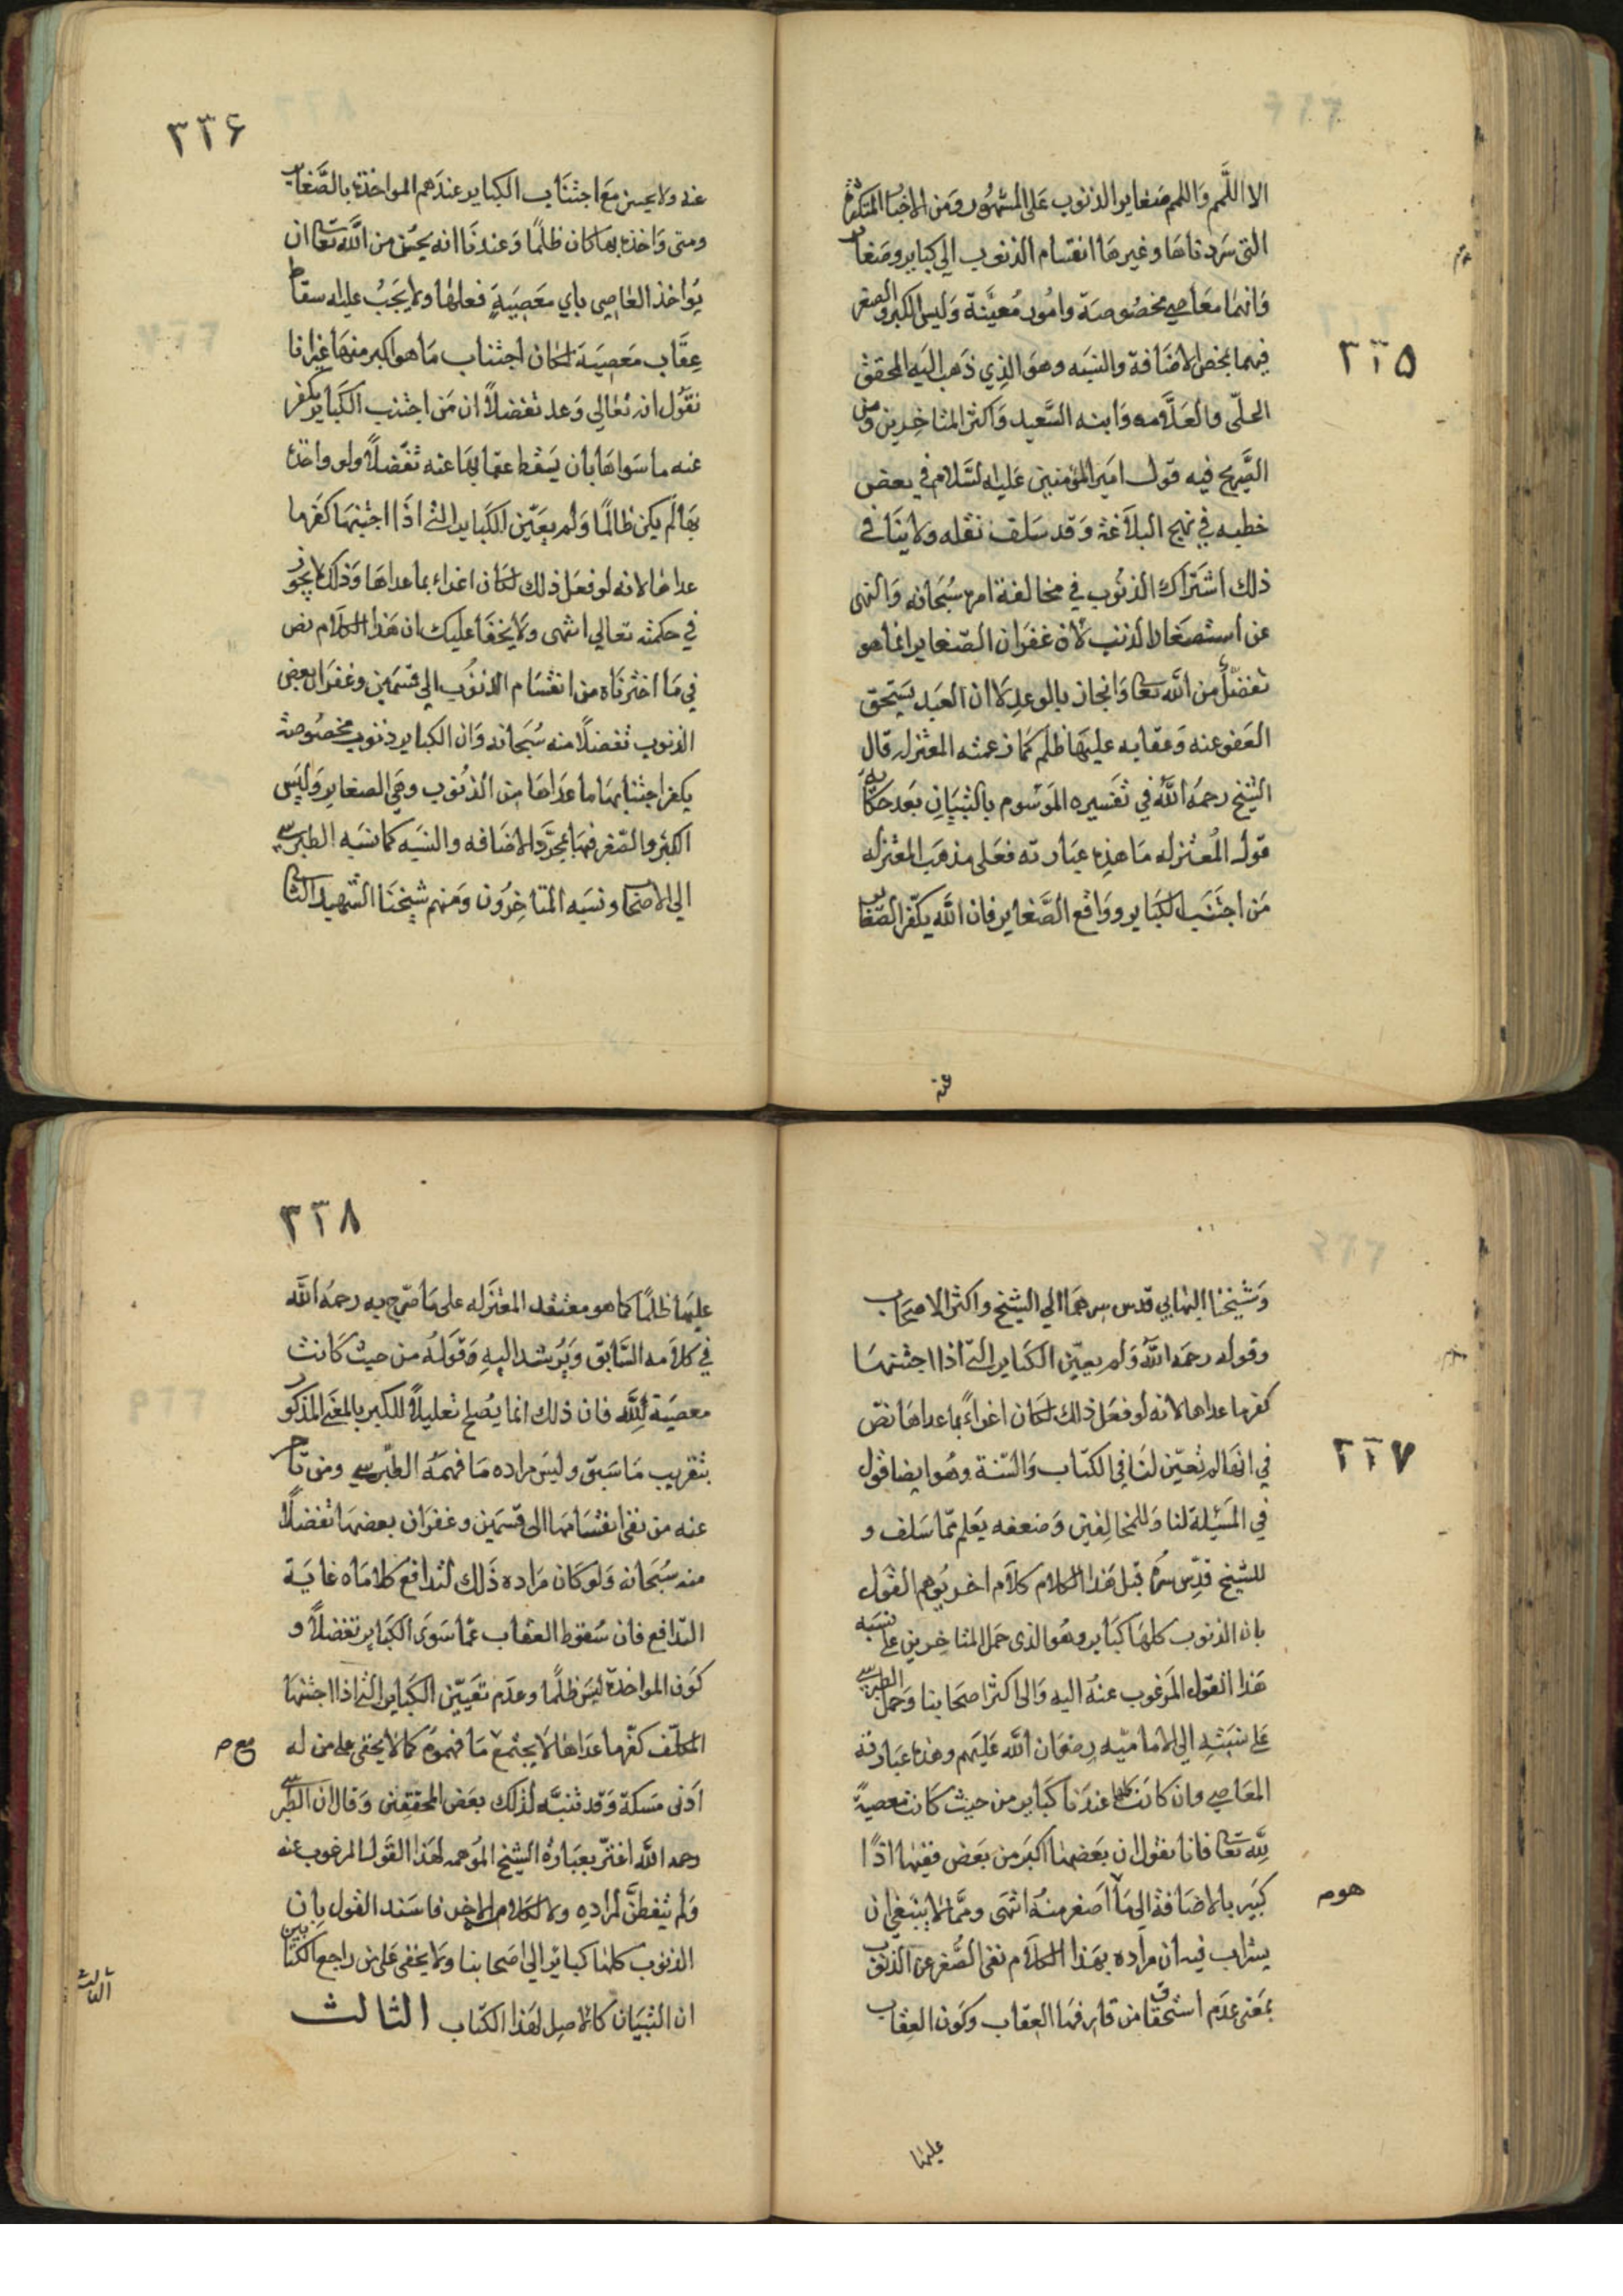 ٣٢٥
الا اللّمم واللمم صغاير الذنوب على المشهور ومن الاخبار المتكثرة
التى سردناها وغيرها انقسام الذنوب الى كباير وصغاير
وانهما معاصي مخصوصة وامور معينة وليس الكبر والصغر
فيهما بمحض الاضافة والنسبه وهو الذي ذهب اليه المحقق
الحلّى والعلّامه وابنه السّعيد واكثر المتاخرين ومن
الصّريح فيه قول امير المؤمنين عليه السّلام في بعض
خطبه في نهج البلاغة وقد سلف نقله ولا ينافي
ذلك اشتراك الذنوب في مخالفة امره سبحانه والنهى
عن استصغار الذنب لان غفران الصّغاير انما هو
تفضّل من اللّه تعالى وانجاز بالوعد لا ان العبد يستحق
العفو عنه وعقابه عليها ظلم كما زعمته المعتزله قال
الشيخ رحمه اللّه في تفسيره الموسوم بالتبيان بعد حكاية
قول المعتزله ما هذه عبارته فعلى مذهب المعتزله
من اجتنب الكباير وواقع الصّغاير فان اللّه يكفّر الصّغاير
عنه
٣٢۶
عنه ولا يحسن مع اجتناب الكباير عندهم المواخذة بالصّغاير
ومتى واخذه بها كان ظلمًا وعندنا انه يحسن من اللّه تعالى ان
يؤاخذ العاصي باي معصية فعلها ولا يجب عليه سقاط
عقاب معصية لمكان اجتناب ما هو اكبر منها غير انا
نقول انه تعالي وعد تفضلًا ان من اجتنب الكباير يكفر
عنه ما سواها بان يسقط عقابها عنه تفضلًا ولو واخذه
بها لم يكن ظالمًا ولم يعيّن الكباير التى اذا اجتنبها كفر ما
عداها لانه لو فعل ذلك لكان اغراء بما عداها وذلك لا يجوز
في حكمته تعالي انتهى ولا يخفا عليك ان هذا الكلام نص
في ما اخترناه من انقسام الذنوب الي قسمين وغفران بعض
الذنوب تفضلًا منه سبحانه وان الكباير ذنوب مخصوصة
يكفر اجتنابها ما عداها من الذنوب وهي الصغاير وليس
الكبر والصّغر فيها بمجرّد الاضافه والنسبه كما نسبه الطبرسي
الي الاصحاب ونسبه المتاخرون ومنهم شيخنا الشهيد الثاني
٣٢٧
وشيخنا البهايي قدس سرهما الي الشيخ واكثر الاصحاب
وقوله رحمه اللّه ولم يعيّن الكباير التى اذا اجتنبها
كفر ما عداها لانه لو فعل ذلك لكان اغراءً بما عداها نصّ
في انها لم تعيّن لنا في الكتاب والسّنة وهو ايضا قول
في المسئلة لنا وللمخالفين وضعفه يعلم مّما سلف و
للشيخ قدّس سرّه قبل هذا الكلام كلام اخر يوهم القول
بان الذنوب كلها كباير وهو الذى حمل المتاخرين على نسبه
هذا القول المرغوب عنه اليه والى اكثر اصحابنا وحمل الطبرسي
على نسبته الى الاماميّه رضوان اللّه عليهم وهذه عبارته
المعاصي وان كانت كلها عندنا كباير من حيث كانت معصيةً
للّه تعالى فانا نقول ان بعضها اكبر من بعض ففيها اذًا
كبير بالاضافة الي ما اصغر منه انتهى وممّا لا ينبغي ان
هوم
يرتاب فيه ان مراده بهذا الكلام نفى الصّغر عن الذنوب
بمعنى عدم استحقاق من قارفها العقاب وكون العقاب
عليها
٣٢٨
عليها ظلمًا كما هو معتقد المعتزله على ما صرّح به رحمه اللّه
في كلامه السّابق ويرشد اليه وقوله من حيث كانت
معصية للّه فان ذلك انما يصلح تعليلًا للكبر بالمعنى المذكور
بتقريب ما سبق وليس مراده ما فهمه الطّبرسي ومن تاخر
عنه من نفى انقسامها الى قسمين وغفران بعضها تفضلًا
منه سبحانه ولو كان مراده ذلك لتدافع كلاماه غاية
التدافع فان سقوط العقاب عمّا سوى الكباير تفضلًا و
كون المواخذة ليس ظلمًا وعدم تعيّين الكباير التى اذا اجتنبها
المكلّف كفّر ما عداها لا يجتمع ما فهموه كما لا يخفى على من له
مع م
ادنى مسكة وقد تنبّه لذلك بعض المحققين وقال ان الطبرسي
رحمه اللّه اغترّ بعبارة الشيخ الموهمه لهذا القول المرغوب عنه
ولم يتفطّن لمراده ولا لكلامه الاخر فاسند القول بان
الذنوب كلها كباير الي اصحابنا ولا يخفى على من راجع الكتابين
ان التبيان كالاصل لهذا الكتاب الثالث
الثالث